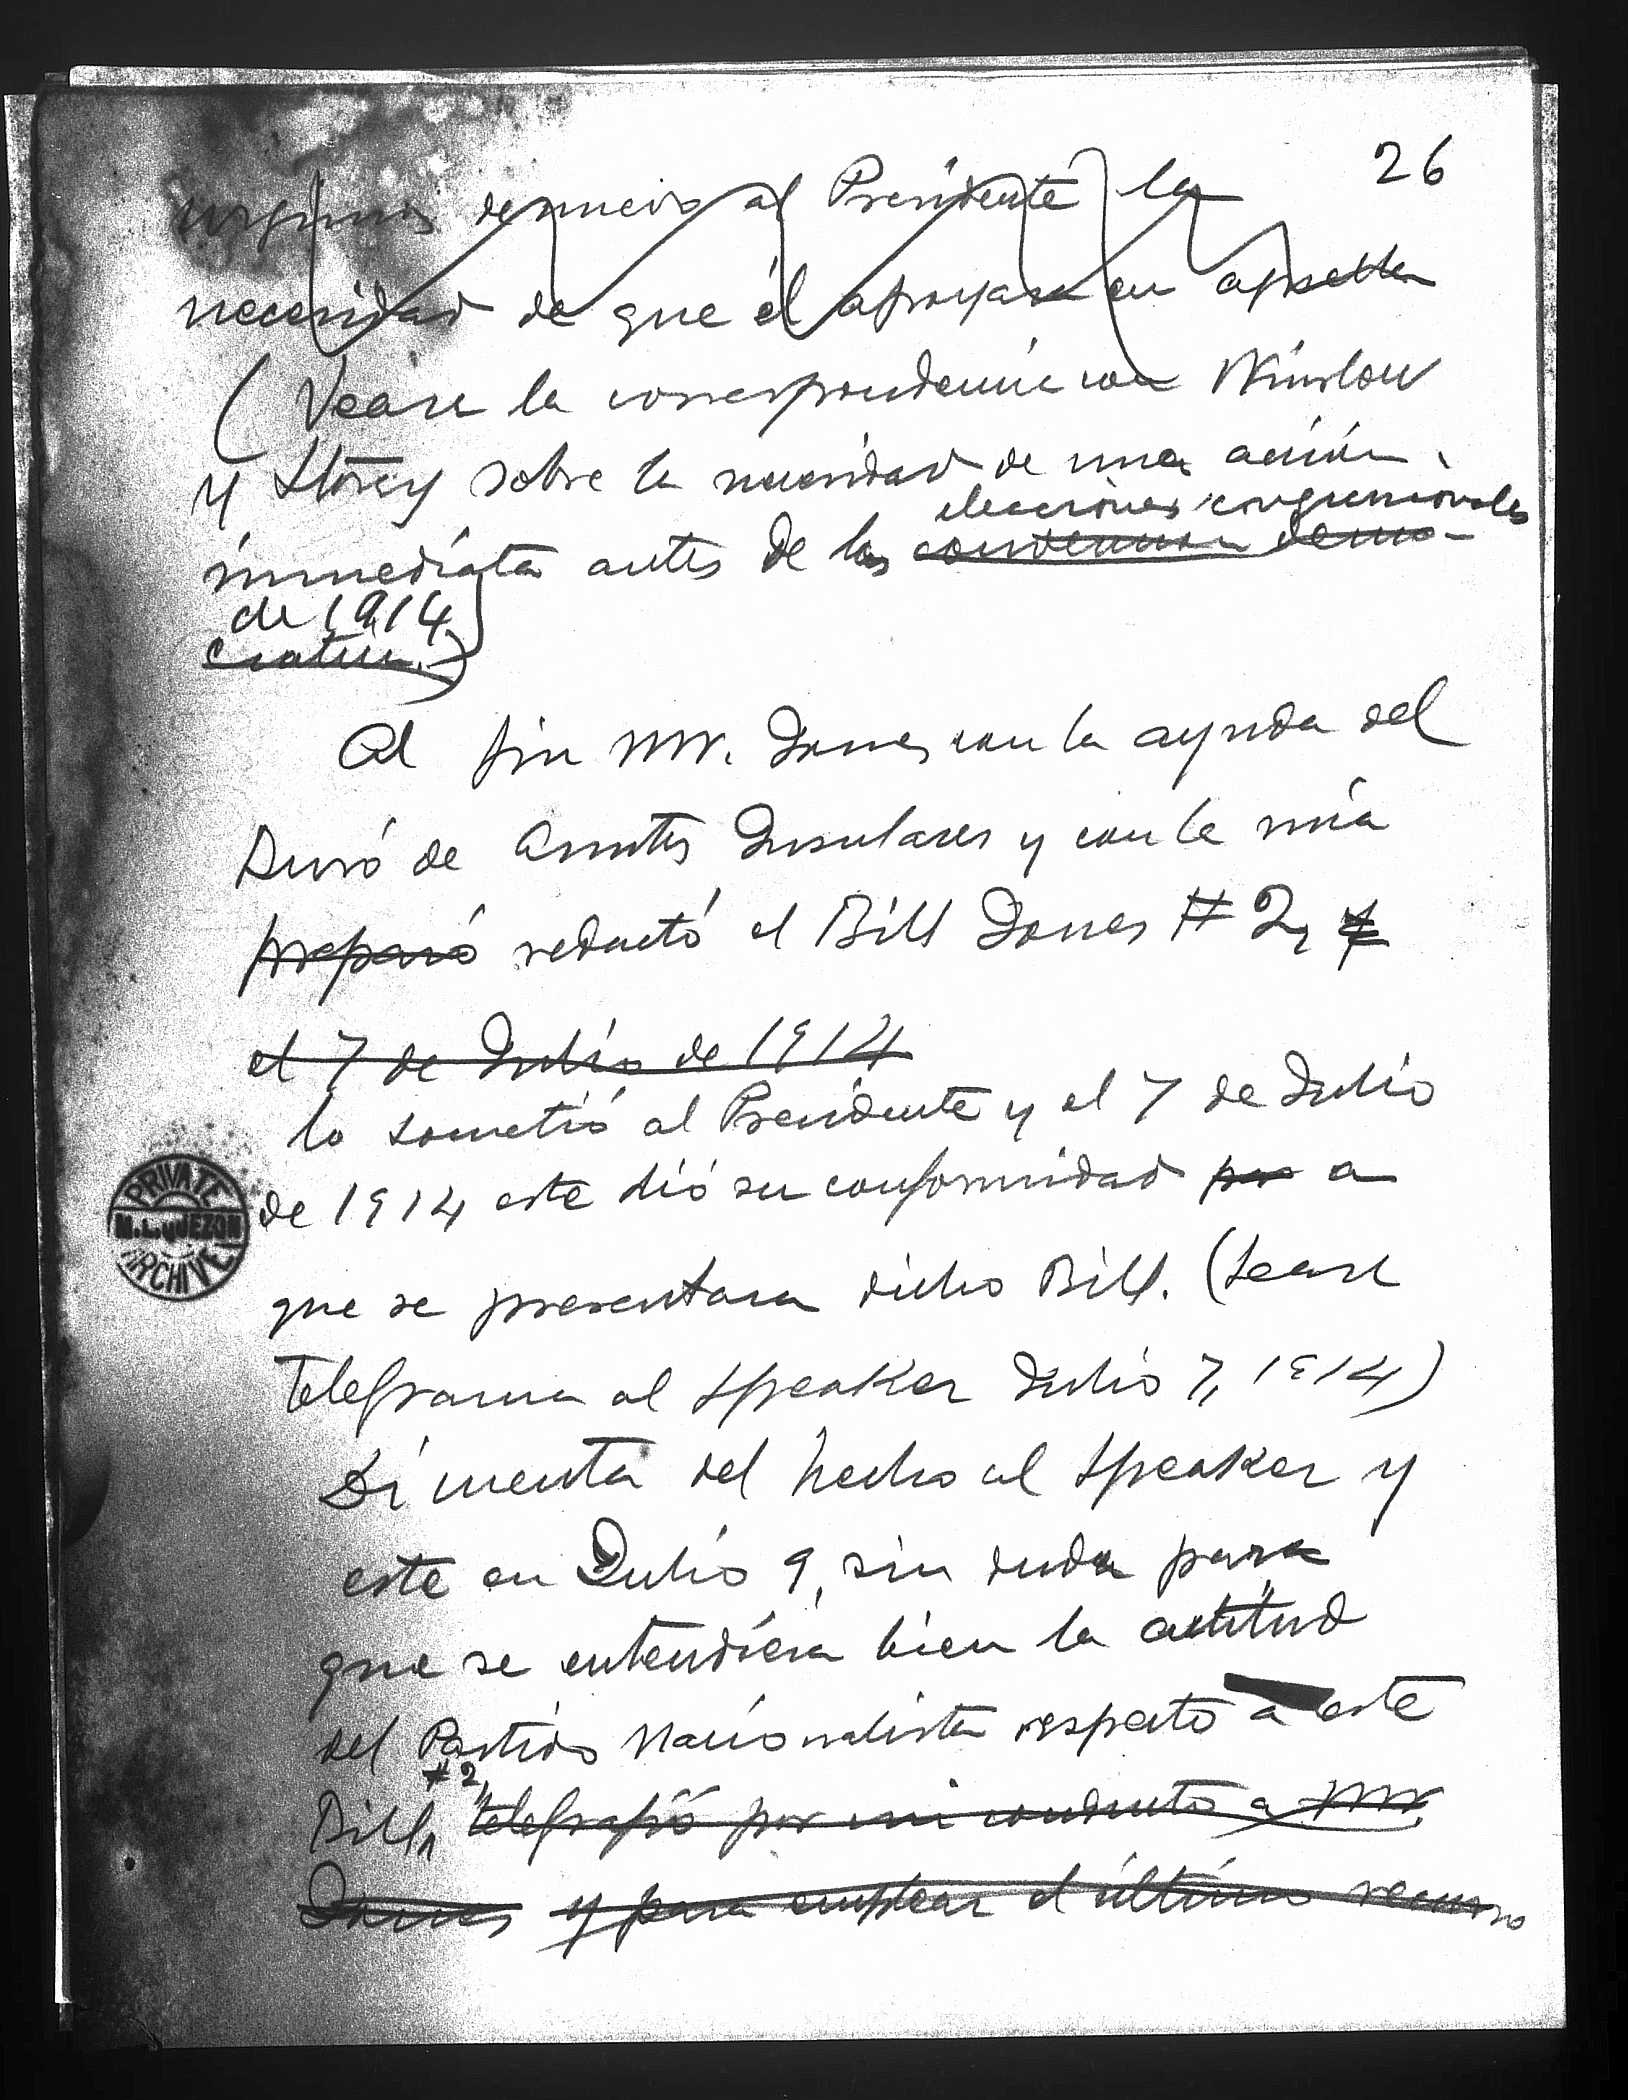 26
urgimos de nuevo al Presidente la
necesidad de que él apoyara en aquella
(Vease la correspondencia con Winslow
y Storey sobre la necesidad de una acción
elecciones congresionales
inmediata antes de las convencion demo-
de 1914
cratica.)
Al fin Mr. Jones con la ayuda del
Buró de Asuntos Insulares y con la mia
preparó redactó el Bill Jones # 2, y
el 7 de Julio de 1914
lo sometió al Presidente y el 7 de Julio
de 1914 este dió su conformidad por a
que se presentara dicho Bill. (Lease
telegrama al Speaker Julio 7, 1914)
Di cuenta del hecho al Speaker y
este en Julio 9, sin duda para
que se entendiera bien la actitud
del Partido Nacionalista respecto a este
#2,
Bill, telegrafió por mi conducto a Mr.
Jones y para emplear el último recurso
PRIVATE
M. L. QUEZON
ARCHIVE